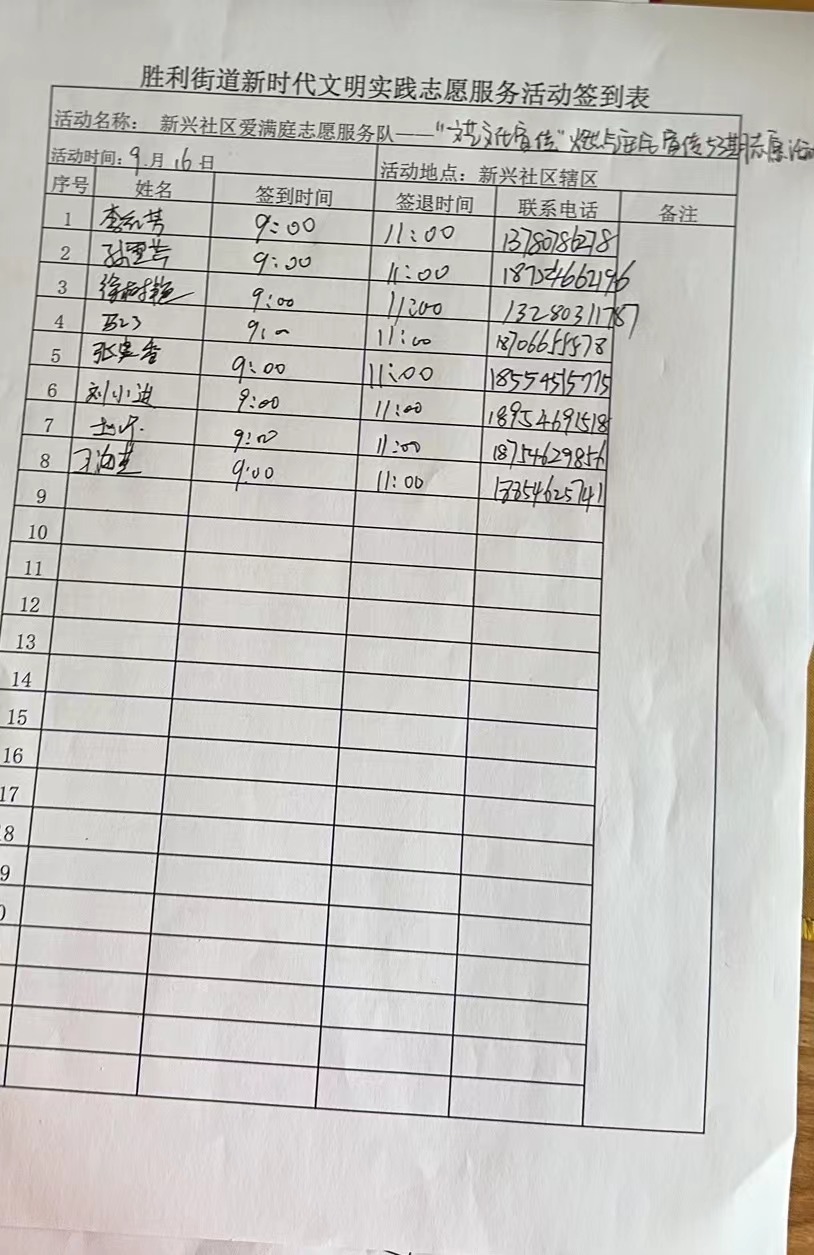 胜利街道新时代文明实践志愿服务活动签到表
活动名称： 新兴社区爱满庭志愿服务队——“文化宣传” 宣传 志愿活动
活动时间：9月16日 活动地点：新兴社区辖区
序号 姓名 签到时间 签退时间 联系电话 备注
1 李红芳 9:00 11:00
2 9:00 11:00 18754662196
3 徐 9:00 11:00 13280311787
4 9:00 11:00 18706655578
5 张 香 9:00 11:00 18554515775
6 刘小迪 9:00 11:00 18954691518
7 9:00 11:00 18754629856
8 9:00 11:00 13354625741
9
10
11
12
13
14
15
16
17
8
9